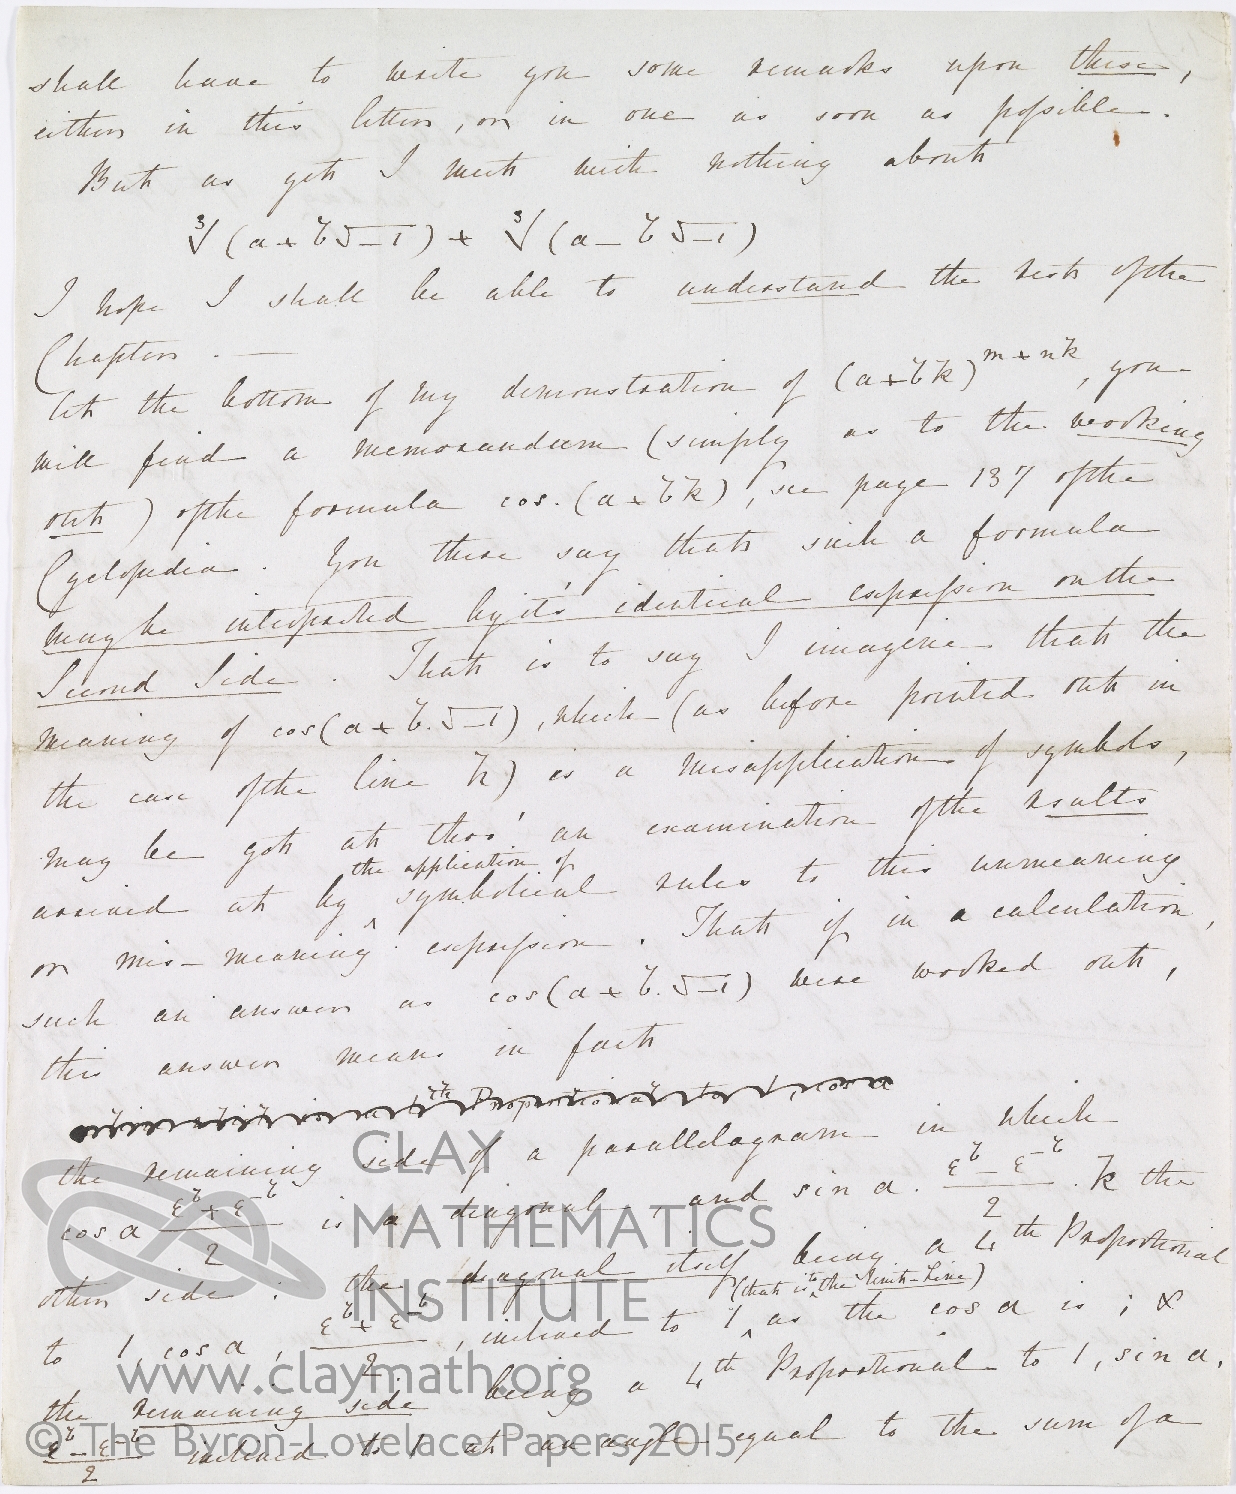 shall have to write you some remarks upon these,
either in this letter, or in one as soon as possible.
But as yet I meet with nothing about
∛(a+b√−1) + ∛(a−b√−1)
I hope I shall be able to understand the rest of the
Chapter. —
At the bottom of my demonstration of (a+bk)^{m+nk}, you
will find a memorandum (simply as to the working
out) of the formula cos.(a+bk), see page 137 of the
Cyclopedia. You there say that such a formula
may be interpreted by it's identical expression on the
Second Side. That is to say I imagine that the
meaning of cos(a+b.√−1), which (as before pointed out in
the case of the line k) is a misapplication of symbols,
may be got at thro' an examination of the results
the application of
arrived at by ^ symbolical rules to this unmeaning
or mis-meaning expression. That if in a calculation,
such an answer as cos(a+b.√−1) were worked out,
this answer means in fact
th Proportional to 1, cos a
the remaining side of a parallelogram in which
cos a (ε^b + ε^−b)/2 is a diagonal, and sin a . (ε^b − ε^−b)/2 . k the
other side : the diagonal itself being a 4th Proportional
(that is to the Unit-Line)
to 1, cos a, (ε^b + ε^−b)/2, inclined to 1 ^ as the cos a is ; &
the remaining side being a 4th Proportional to 1, sin a,
(ε^b − ε^−b)/2 inclined to 1 at an angle equal to the sum of a
CLAY
MATHEMATICS
INSTITUTE
www.claymath.org
© The Byron-Lovelace Papers 2015